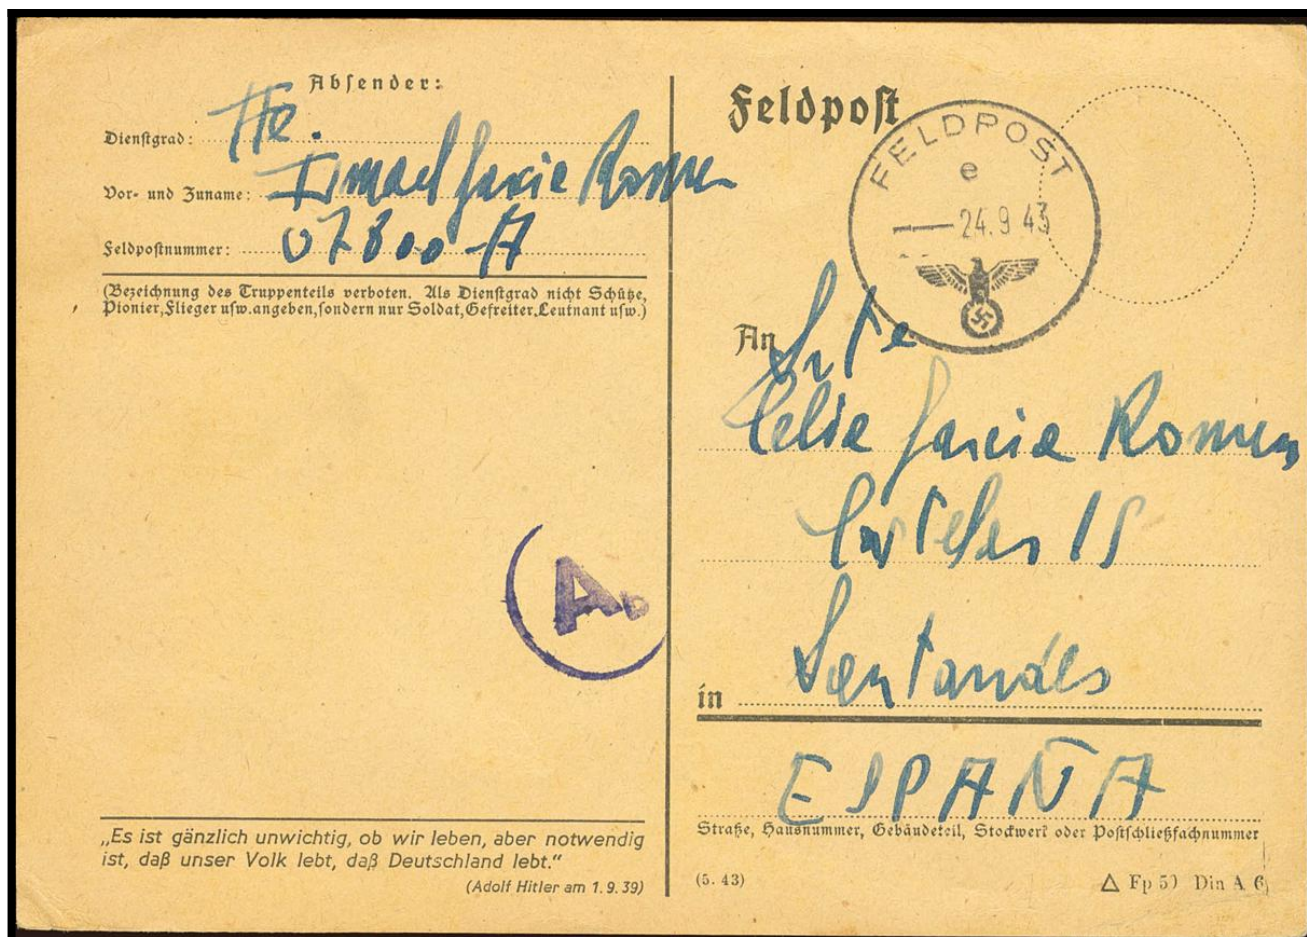 Absender:
Dienstgrad: Tte.
Vor- und Zuname: Ismael Garcia Romer
Feldpostnummer: 07800-A
(Bezeichnung des Truppenteils verboten. Als Dienstgrad nicht Schütze,
Pionier, Flieger usw. angeben, sondern nur Soldat, Gefreiter, Leutnant usw.)
Ab
„Es ist gänzlich unwichtig, ob wir leben, aber notwendig
ist, daß unser Volk lebt, daß Deutschland lebt.“
(Adolf Hitler am 1.9.39)
Feldpost
FELDPOST
e
24.9 43
An Srta
Celia Garcia Romer
15
in Santander
ESPAÑA
Straße, Hausnummer, Gebäudeteil, Stockwerk oder Postschließfachnummer
(5. 43)
△ Fp 50 Din A 6